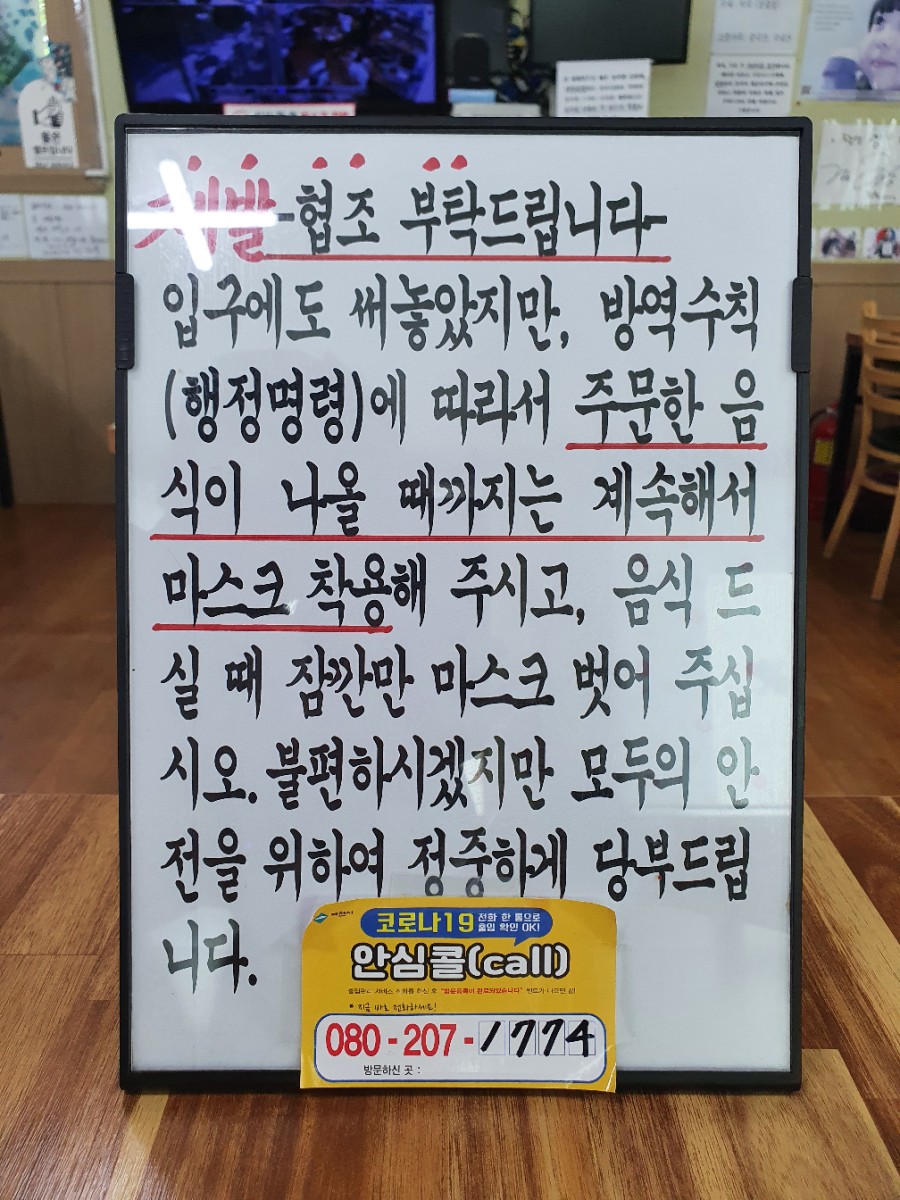 제발 -협조 부탁드립니다-
입구에도 써놓았지만, 방역수칙
(행정명령)에 따라서 주문한 음
식이 나올 때까지는 계속해서
마스크 착용해 주시고, 음식 드
실 때 잠깐만 마스크 벗어 주십
시오. 불편하시겠지만 모두의 안
전을 위하여 정중하게 당부드립
니다.
코로나19 전화 한 통으로
출입 확인 OK!
안심콜(call)
"방문등록이 완료되었습니다"
* 지금 바로 전화하세요!
080-207-1774
방문하신 곳 :